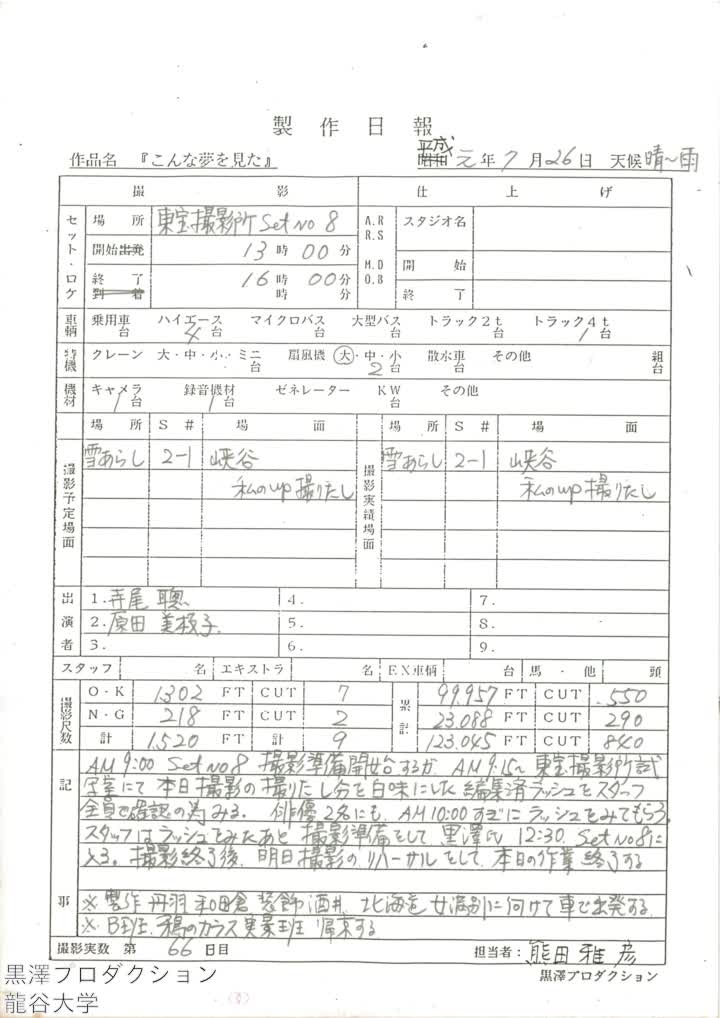 製作日報
作品名 『こんな夢を見た』 昭和 平成 元年 7月 26日 天候 晴〜雨
撮影 仕上げ
セット・ロケ 場所 東宝撮影所 Set No 8 A.R R.S M.D O.B スタジオ名
開始 出発 13時 00分 開始
終了 到着 16時 00分 時 分 終了
車輌 乗用車 台 ハイエース 4台 マイクロバス 台 大型バス 台 トラック2t 台 トラック4t 1台
特機 クレーン 大・中・小・ミニ 台 扇風機 大・中・小 2台 散水車 台 その他 組 台
機材 キャメラ 1台 録音機材 1台 ゼネレーター KW 台 その他
撮影予定場面 場所 S# 場面 撮影実績場面 場所 S# 場面
雪あらし 2-1 峡谷 雪あらし 2-1 峡谷
私のup撮りたし 私のup撮りたし
出演者 1.寺尾 聰 4. 7.
2.原田 美枝子 5. 8.
3. 6. 9.
スタッフ 名 エキストラ 名 EX車輌 台 馬・他 頭
撮影尺数 O・K 1302 FT CUT 7 累計 99.957 FT CUT 550
N・G 218 FT CUT 2 23.088 FT CUT 290
計 1.520 FT 計 9 123.045 FT CUT 840
記 AM 9:00 Set No 8 撮影準備開始するが、AM 9:15〜東宝撮影所試
写室にて本日撮影の撮りたし分を白味にした編集済ラッシュをスタッフ
全員で確認の為みる。俳優2名にも、AM10:00すぎにラッシュをみてもらう。
スタッフはラッシュをみたあと撮影準備をして、黒澤氏 12:30. Set No 8に
入る。撮影終了後、明日撮影の、リハーサルをして、本日の作業終了する
※製作 丹羽 和田倉 装飾 酒井、北海道女満別に向けて車で出発する。
※B班、鴉のカラス実景班 帰京する
撮影実数 第 66日目 担当者:熊田雅彦
黒澤プロダクション
黒澤プロダクション
龍谷大学